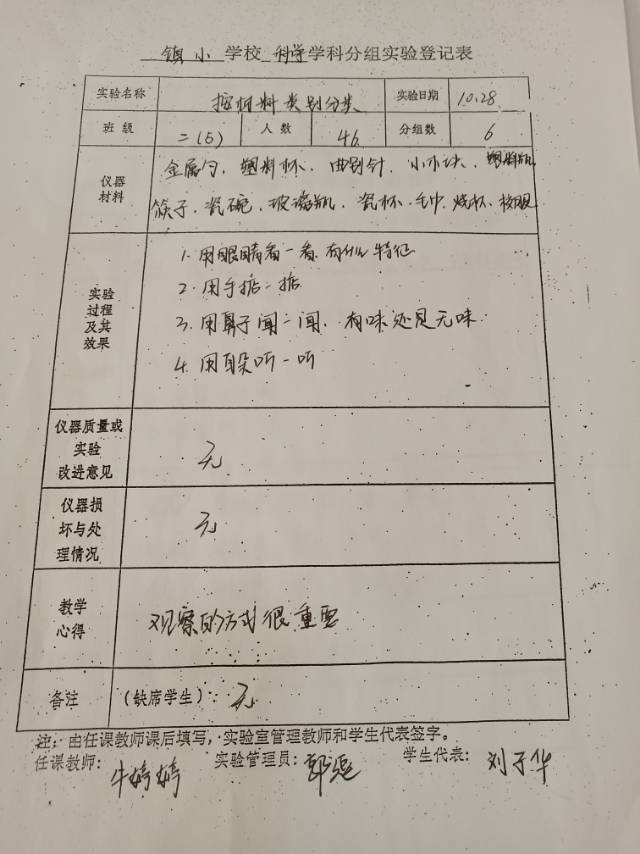 镇小 学校 科学 学科分组实验登记表
实验名称 按材料类别分类 实验日期 10.28
班级 二(5) 人数 46 分组数 6
仪器材料 金属勺、塑料杯、曲别针、小木块、塑料瓶
筷子、瓷碗、玻璃瓶、瓷杯、毛巾、烧杯、
实验过程及其效果
1. 用眼睛看一看、有什么特征
2. 用手掂一掂
3. 用鼻子闻一闻、有味还是无味.
4. 用耳朵听一听
仪器质量或实验改进意见 无
仪器损坏与处理情况 无
教学心得 观察的方式很重要
备注 (缺席学生): 无
注: 由任课教师课后填写, 实验室管理教师和学生代表签字。
任课教师: 牛婷婷 实验管理员: 学生代表: 刘子华